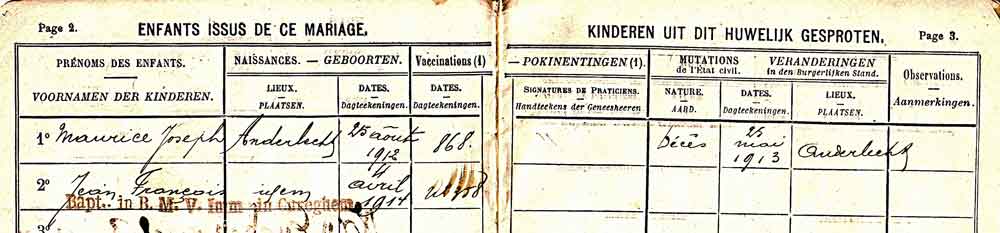 Page 2. ENFANTS ISSUS DE CE MARIAGE.
KINDEREN UIT DIT HUWELIJK GESPROTEN. Page 3.
PRÉNOMS DES ENFANTS.
VOORNAMEN DER KINDEREN.
NAISSANCES. — GEBOORTEN.
LIEUX.
PLAATSEN.
DATES.
Dagteekeningen.
Vaccinations (1)
DATES.
Dagteekeningen.
— POKINENTINGEN (1).
SIGNATURES DE PRATICIENS.
Handteekens der Geneesheeren
MUTATIONS
de l'État civil.
VERANDERINGEN
in den Burgerlijken Stand.
NATURE.
AARD.
DATES.
Dagteekeningen.
LIEUX.
PLAATSEN.
Observations.
Aanmerkingen.
1º Maurice Joseph
Anderlecht
25 août
1912
868.
Décès
25
mai
1913
Anderlecht
2º
Jean François
idem
4
avril
1914
Bapt. in B. M. V. Imm in Cureghem
3º